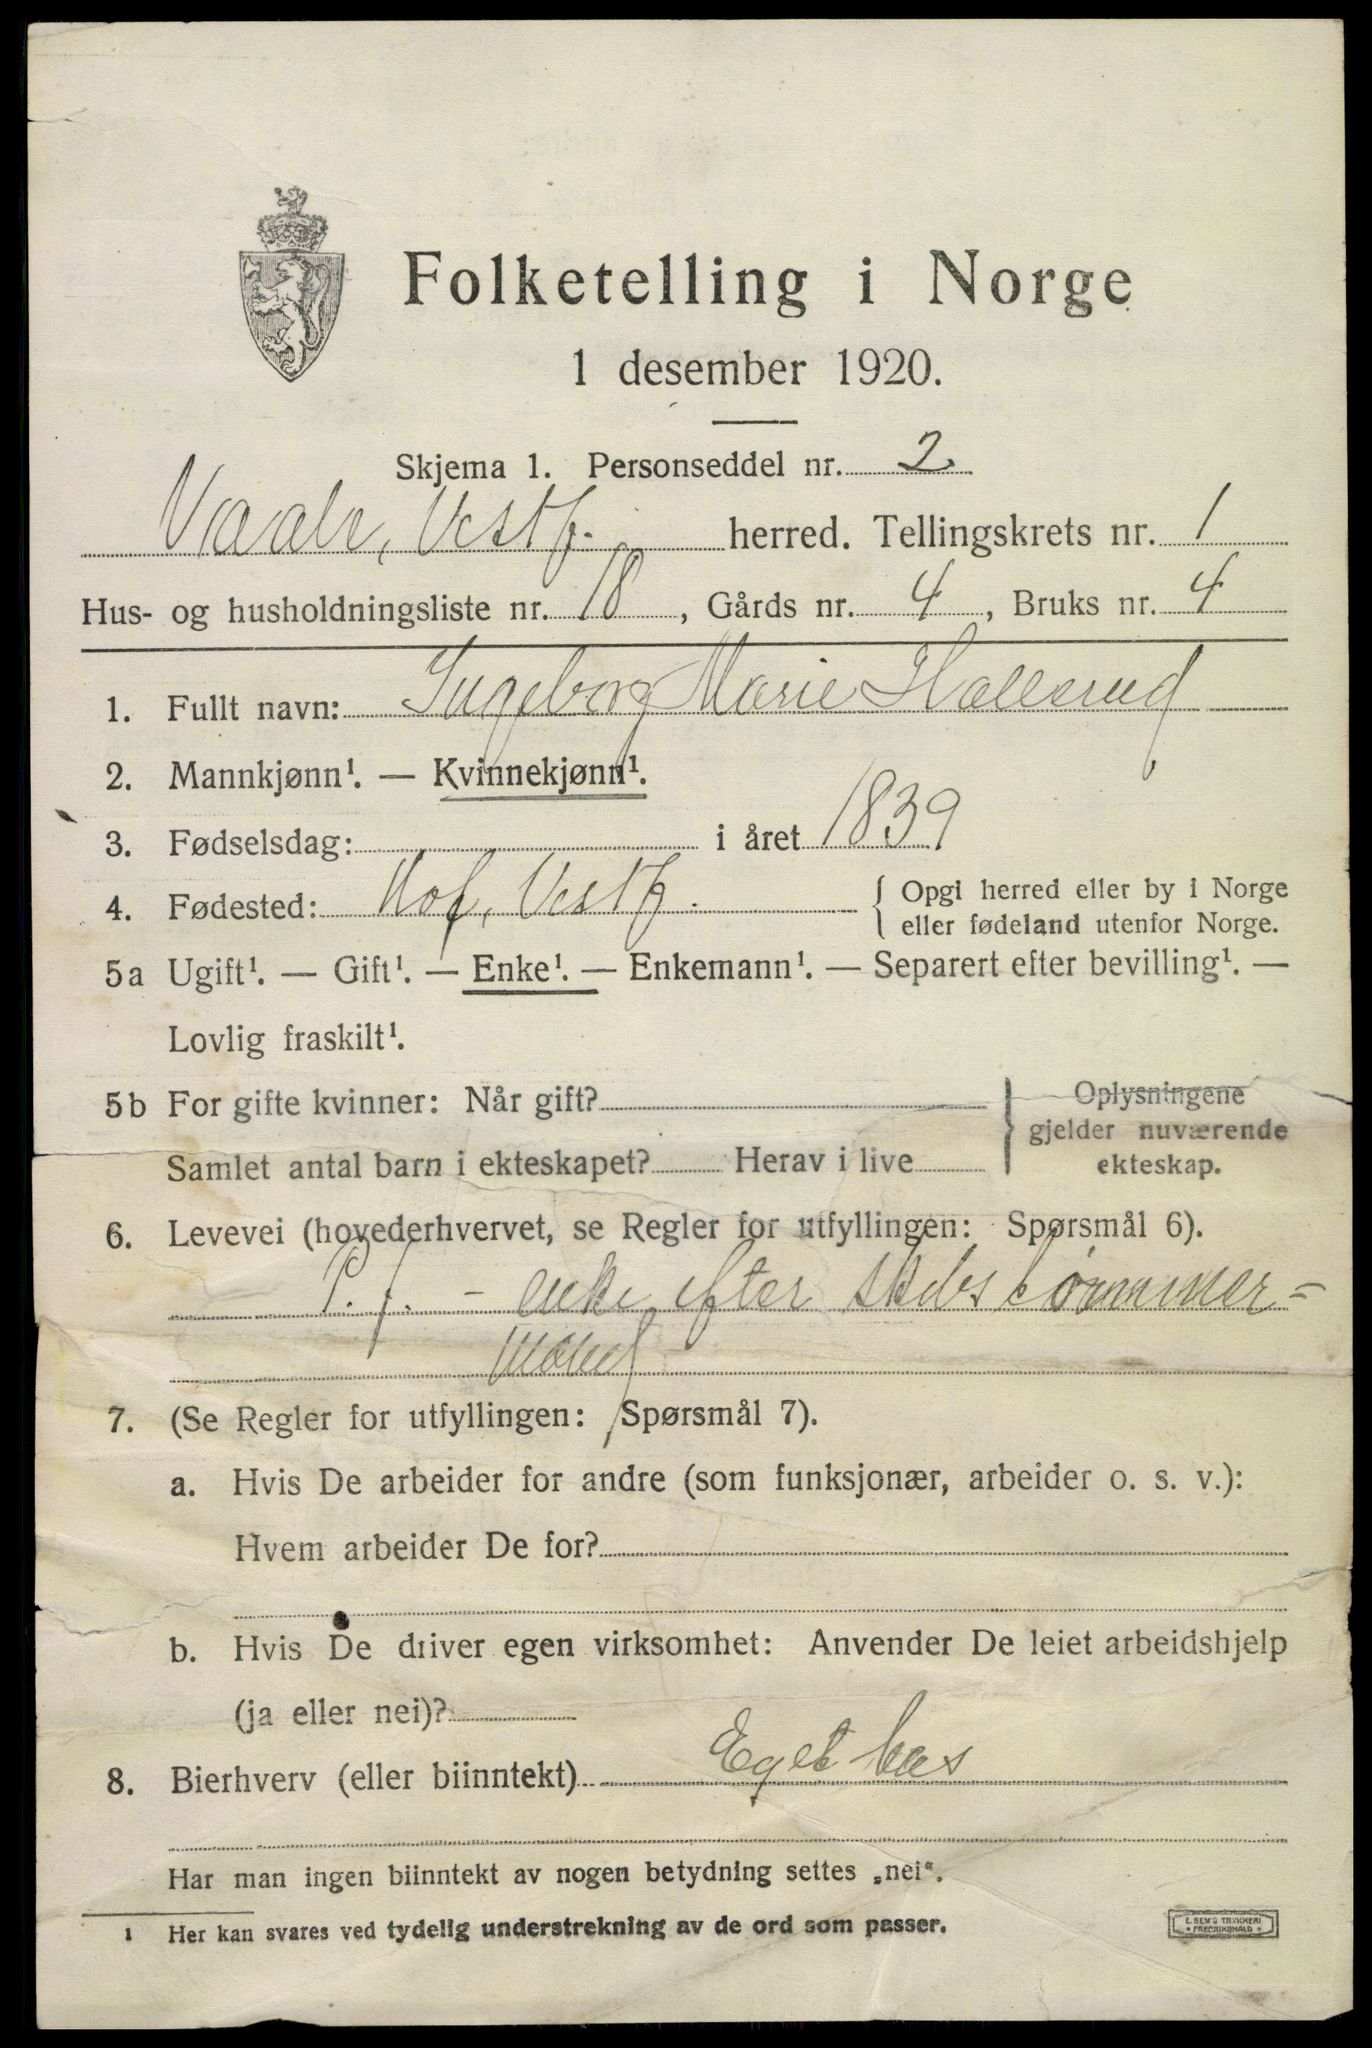 Folketelling i Norge
1 desember 1920.
Skjema 1. Personseddel nr. 2
Vaale, Vestf. herred. Tellingskrets nr. 1
Hus- og husholdningsliste nr. 18, Gårds nr. 4, Bruks nr. 4
1. Fullt navn: Ingeborg Marie Hallsrud
2. Mannkjønn¹. — Kvinnekjønn¹.
3. Fødselsdag: i året 1839
4. Fødested: Hof, Vestf. { Opgi herred eller by i Norge
eller fødeland utenfor Norge.
5a Ugift¹. — Gift¹. — Enke¹. — Enkemann¹. — Separert efter bevilling¹. —
Lovlig fraskilt¹.
5b For gifte kvinner: Når gift? } Oplysningene
gjelder nuværende
Samlet antal barn i ekteskapet? Herav i live ekteskap.
6. Levevei (hovederhvervet, se Regler for utfyllingen: Spørsmål 6).
P. f. - enke efter skibstømmer=
mand
7. (Se Regler for utfyllingen: Spørsmål 7).
a. Hvis De arbeider for andre (som funksjonær, arbeider o. s. v.):
Hvem arbeider De for?
b. Hvis De driver egen virksomhet: Anvender De leiet arbeidshjelp
(ja eller nei)?
8. Bierhverv (eller biinntekt) Eget hus
Har man ingen biinntekt av nogen betydning settes „nei“.
1 Her kan svares ved tydelig understrekning av de ord som passer.
E. SEM'S TRYKKERI
• FREDRIKSHALD •